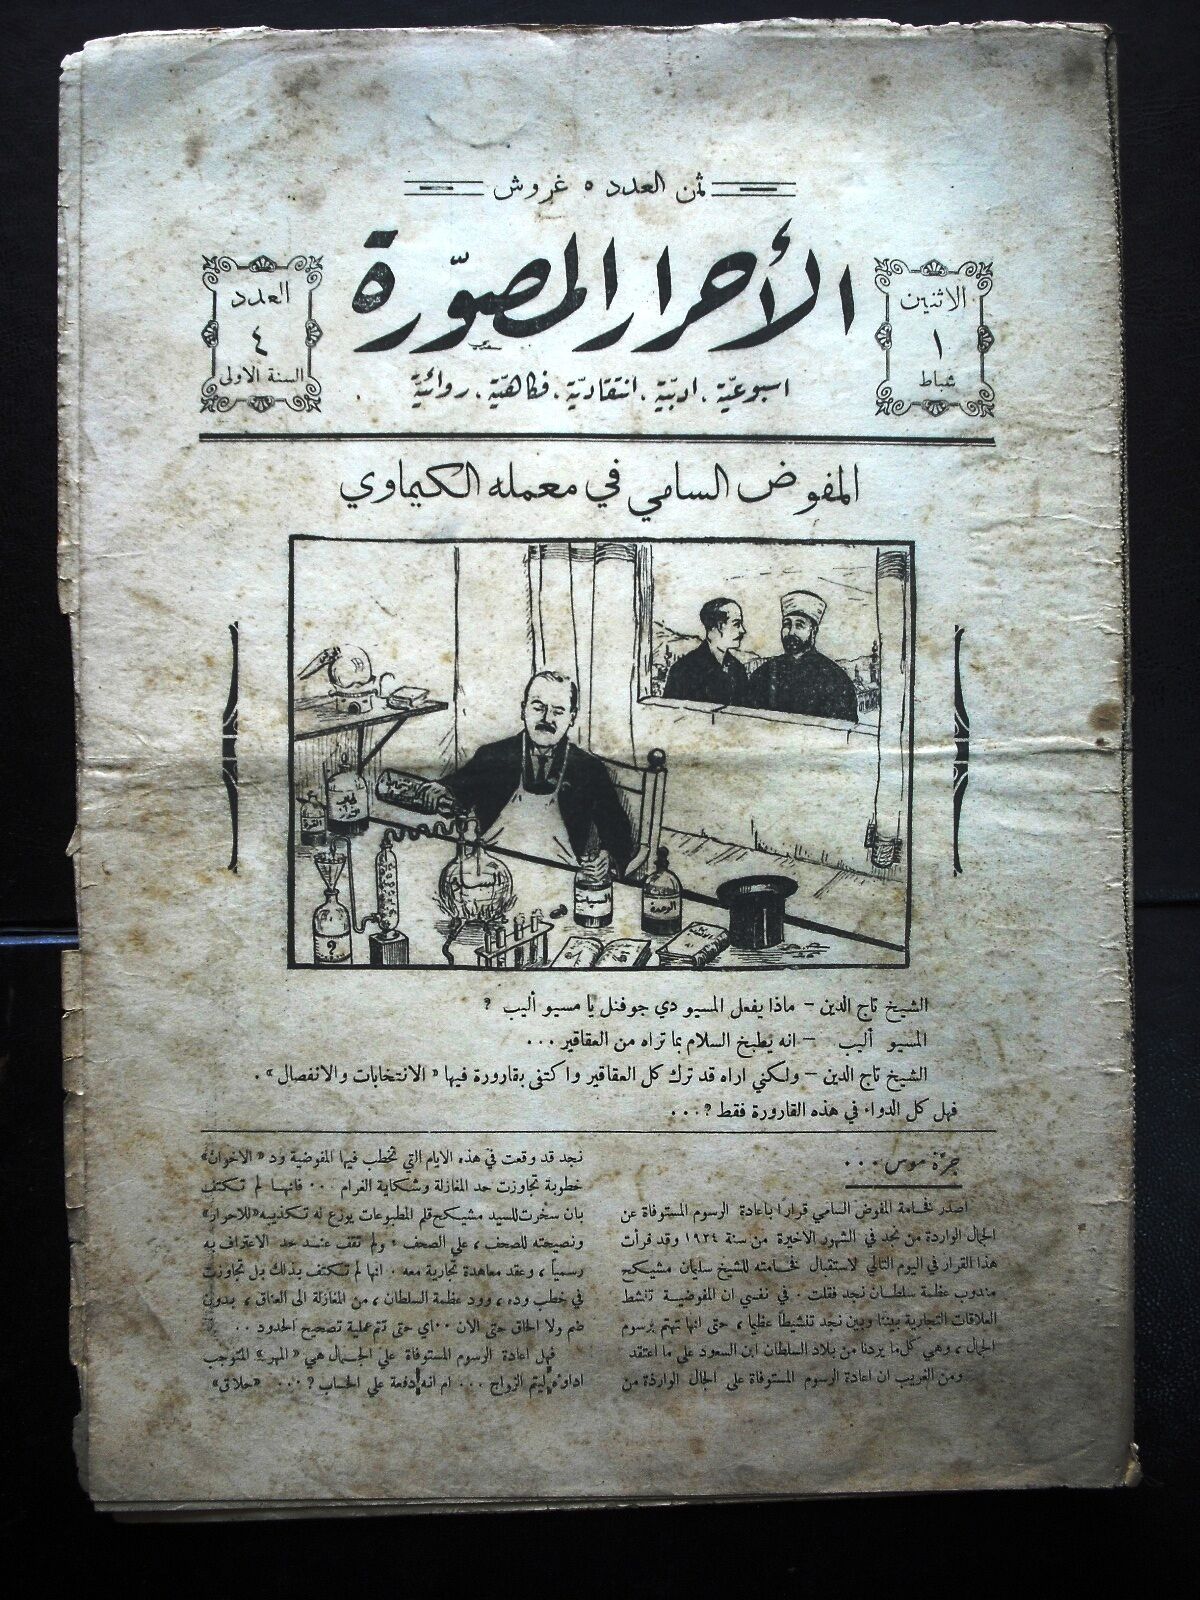 ثمن العدد ٥ غروش
الاثنين
١
شباط
الأحرار المصوّرة
العدد
٤
السنة الاولى
اسبوعيّة . ادبيّة . انتقاديّة . فكاهيّة . روائيّة
المفوض السامي في معمله الكيماوي
السلام
الوحدة
?
الشيخ تاج الدين – ماذا يفعل المسيو دي جوفنل يا مسيو أليب ?
المسيو أليب – انه يطبخ السلام بما تراه من العقاقير ...
الشيخ تاج الدين – ولكني اراه قد ترك كل العقاقير واكتفى بقارورة فيها «الانتخابات والانفصال» .
فهل كل الدواء في هذه القارورة فقط ?...
جرّة موس ...
اصدر فخامة المفوض السامي قراراً باعادة الرسوم المستوفاة عن
الجمال الواردة من نجد في الشهور الاخيرة من سنة ١٩٢٤ وقد قرأت
هذا القرار في اليوم التالي لاستقبال فخامته للشيخ سليمان مشيكح
مندوب عظمة سلطان نجد فقلت . في نفسي ان المفوضية تنشط
العلاقات التجارية بيننا وبين نجد تنشيطاً عظيما ، حتى انها تهتم برسوم
الجمال ، وهي كل ما يردنا من بلاد السلطان ابن السعود على ما اعتقد
ومن الغريب ان اعادة الرسوم المستوفاة على الجمال الواردة من
نجد قد وقعت في هذه الايام التي تخطب فيها المفوضية ود «الاخوان»
خطوبة تجاوزت حد المغازلة وشكاية الغرام ... فانها لم تكتف
بان سخرت للسيد مشيكح قلم المطبوعات يوزع له تكذيبه «للاحرار»
ونصيحته للصحف ، على الصحف . ولم تقف عند حد الاعتراف به
رسمياً ، وعقد معاهدة تجارية معه . انها لم تكتف بذلك بل تجاوزت
في خطب وده ، وود عظمة السلطان ، من المغازلة الى العناق ، بدون
ضم ولا الحاق حتى الآن .. اي حتى تتم عملية تصحيح الحدود ..
فهل اعادة الرسوم المستوفاة على الجمال هي «المهر» المتوجب
اداؤه ليتم الزواج ... ام انه دفعة على الحساب ? ... «حلاق»